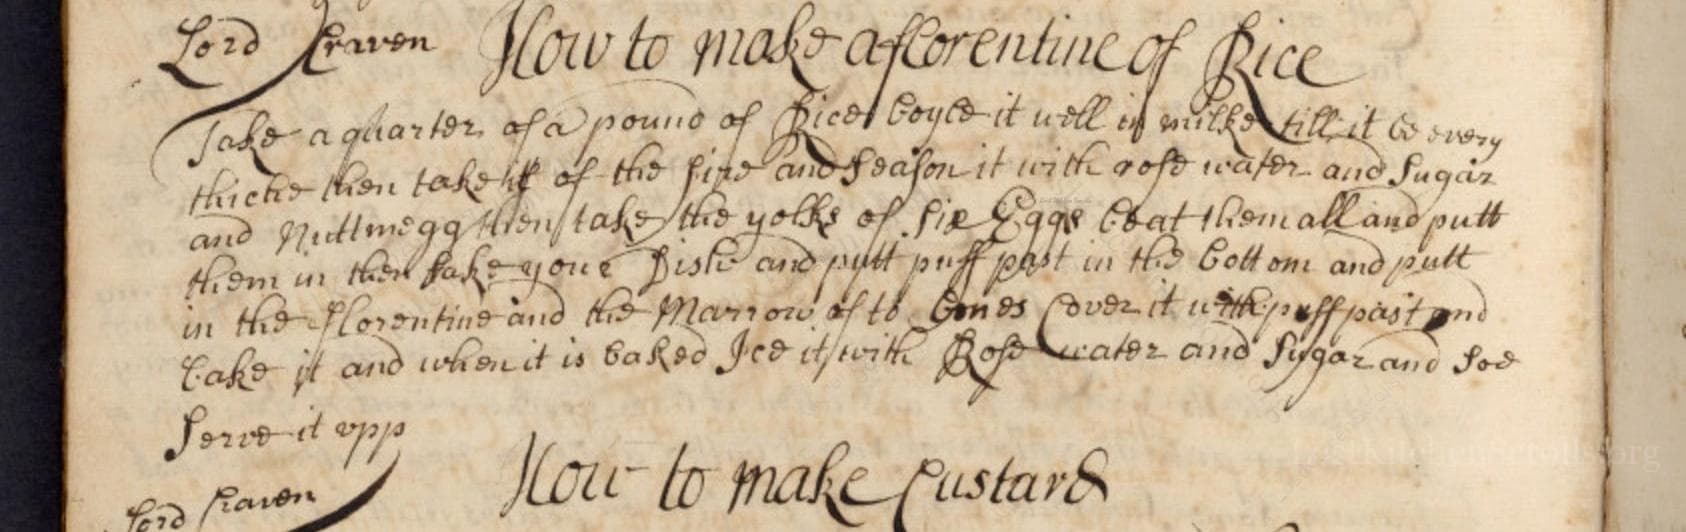 Lord Craven How to make a florentine of Rice
Take a quarter of a pound of Rice boyle it well in milke till it be every
thicke then take it of the fire and season it with rose water and Sugar
and Nuttmegg then take the yolks of six Eggs beat them all and putt
them in then take your Dish and putt puff past in the bottom and putt
in the florentine and the Marrow of to bones Cover it with puff past and
bake it and when it is baked Ice it with Rose water and Sugar and soe
Serve it vpp
How to make Custard
Lord Craven
LostKitchenScrolls.org